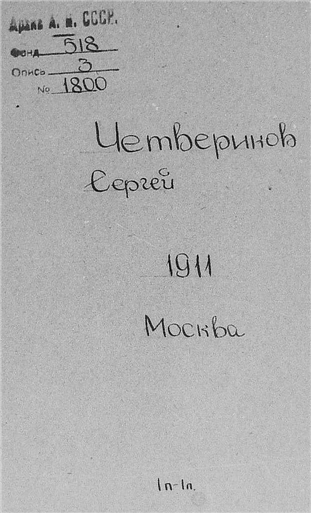 Архив А. Н. СССР.
Фонд 518
Опись 3
№ 1800
Четвериков
Сергей
1911
Москва
1л-1л.